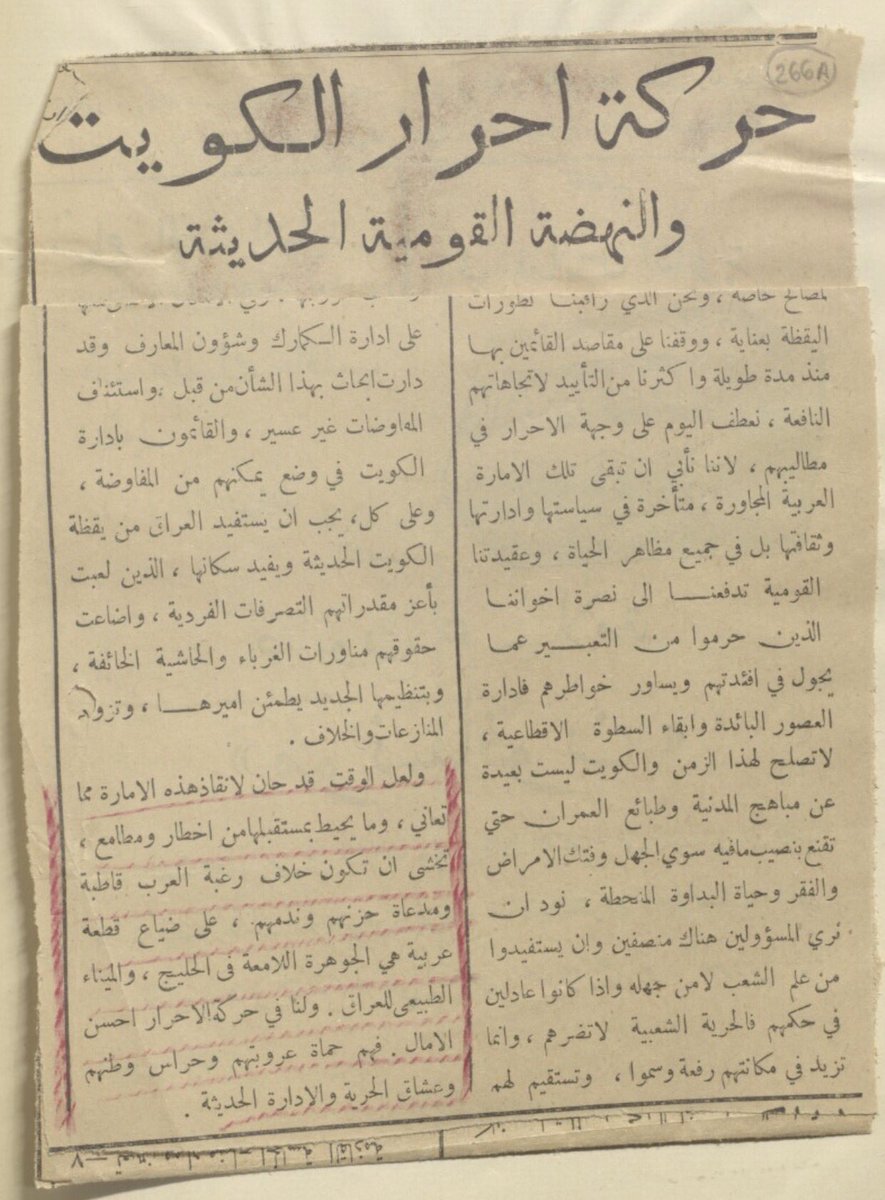 266A
حركة احرار الكويت
والنهضة القومية الحديثة
لمصالح خاصة ، ونحن الذي راقبنا تطورات
اليقظة بعناية ، ووقفنا على مقاصد القائمين بها
منذ مدة طويلة واكثرنا من التأييد لاتجاهاتهم
النافعة ، نعطف اليوم على وجهة الاحرار في
مطاليبهم ، لاننا نأبي ان تبقى تلك الامارة
العربية المجاورة ، متأخرة في سياستها وادارتها
وثقافتها بل في جميع مظاهر الحياة ، وعقيدتنا
القومية تدفعنا الى نصرة اخواننا
الذين حرموا من التعبير عما
يجول في افئدتهم ويساور خواطرهم فادارة
العصور البائدة وابقاء السطوة الاقطاعية ،
لاتصلح لهذا الزمن والكويت ليست بعيدة
عن مباهج المدنية وطبائع العمران حتي
تقنع بنصيب مافيه سوي الجهل وفتك الامراض
والفقر وحياة البداوة المنحطة ، نود ان
نري المسؤولين هناك منصفين وان يستفيدوا
من علم الشعب لامن جهله واذا كانوا عادلين
في حكمهم فالحرية الشعبية لاتضرهم ، وانما
تزيد في مكانتهم رفعة وسموا ، وتستقيم لهم
على ادارة الكمارك وشؤون المعارف وقد
دارت ابحاث بهذا الشأن من قبل ، واستئناف
المفاوضات غير عسير ، والقائمون بادارة
الكويت في وضع يمكنهم من المفاوضة ،
وعلى كل، يجب ان يستفيد العراق من يقظة
الكويت الحديثة ويفيد سكانها ، الذين لعبت
بأعز مقدراتهم التصرفات الفردية ، واضاعت
حقوقهم مناورات الغرباء والحاشية الخائفة ،
وبتنظيمها الجديد يطمئن اميرها ، وتزول
المنازعات والخلاف .
ولعل الوقت قد حان لانقاذ هذه الامارة مما
تعاني ، وما يحيط بمستقبلها من اخطار ومطامع ،
نخشى ان تكون خلاف رغبة العرب قاطبة
ومدعاة حزنهم وندمهم ، على ضياع قطعة
عربية هي الجوهرة اللامعة في الخليج ، والميناء
الطبيعى للعراق . ولنا في حركة الاحرار احسن
الامال . فهم حماة عروبتهم وحراس وطنهم
وعشاق الحرية والادارة الحديثة .